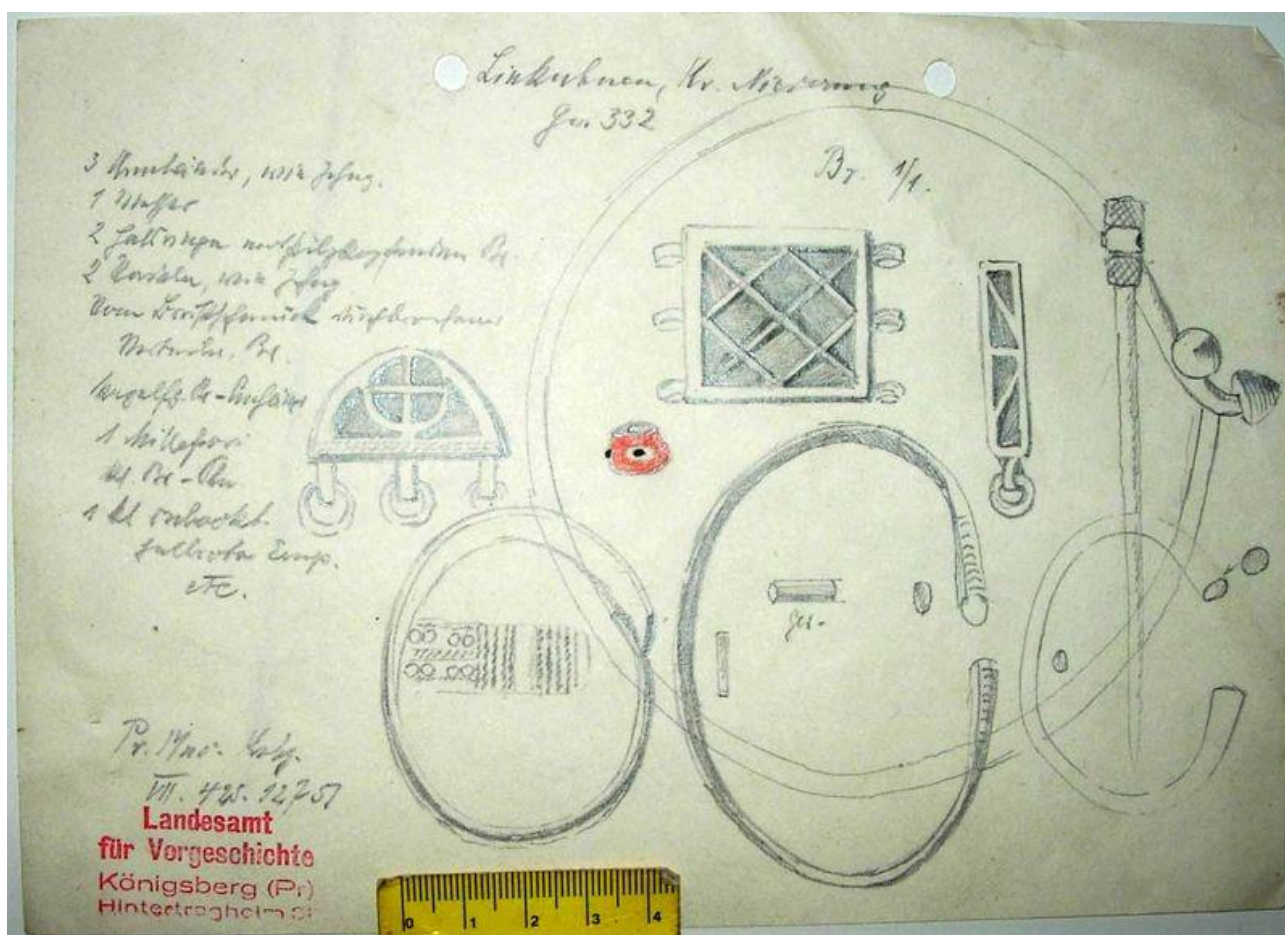 Linkuhnen, Kr. Niederung
Gr. 332
Br. 1/1.
3 Armbänder, wie Zchng.
1 Messer
2 Halsringe mit pilzkopfenden Br.
2 Nadeln, wie Zchng
Vom Brustschmuck durchbrochene
Br.
Br-Anhänger
1 Millefiori
kl. Br-
1 kl
etc.
Ges.
Pr. Mus. Kbg.
VII. 425. 12751
Landesamt
für Vorgeschichte
Königsberg (Pr)
Hintertragheim 31
0 1 2 3 4